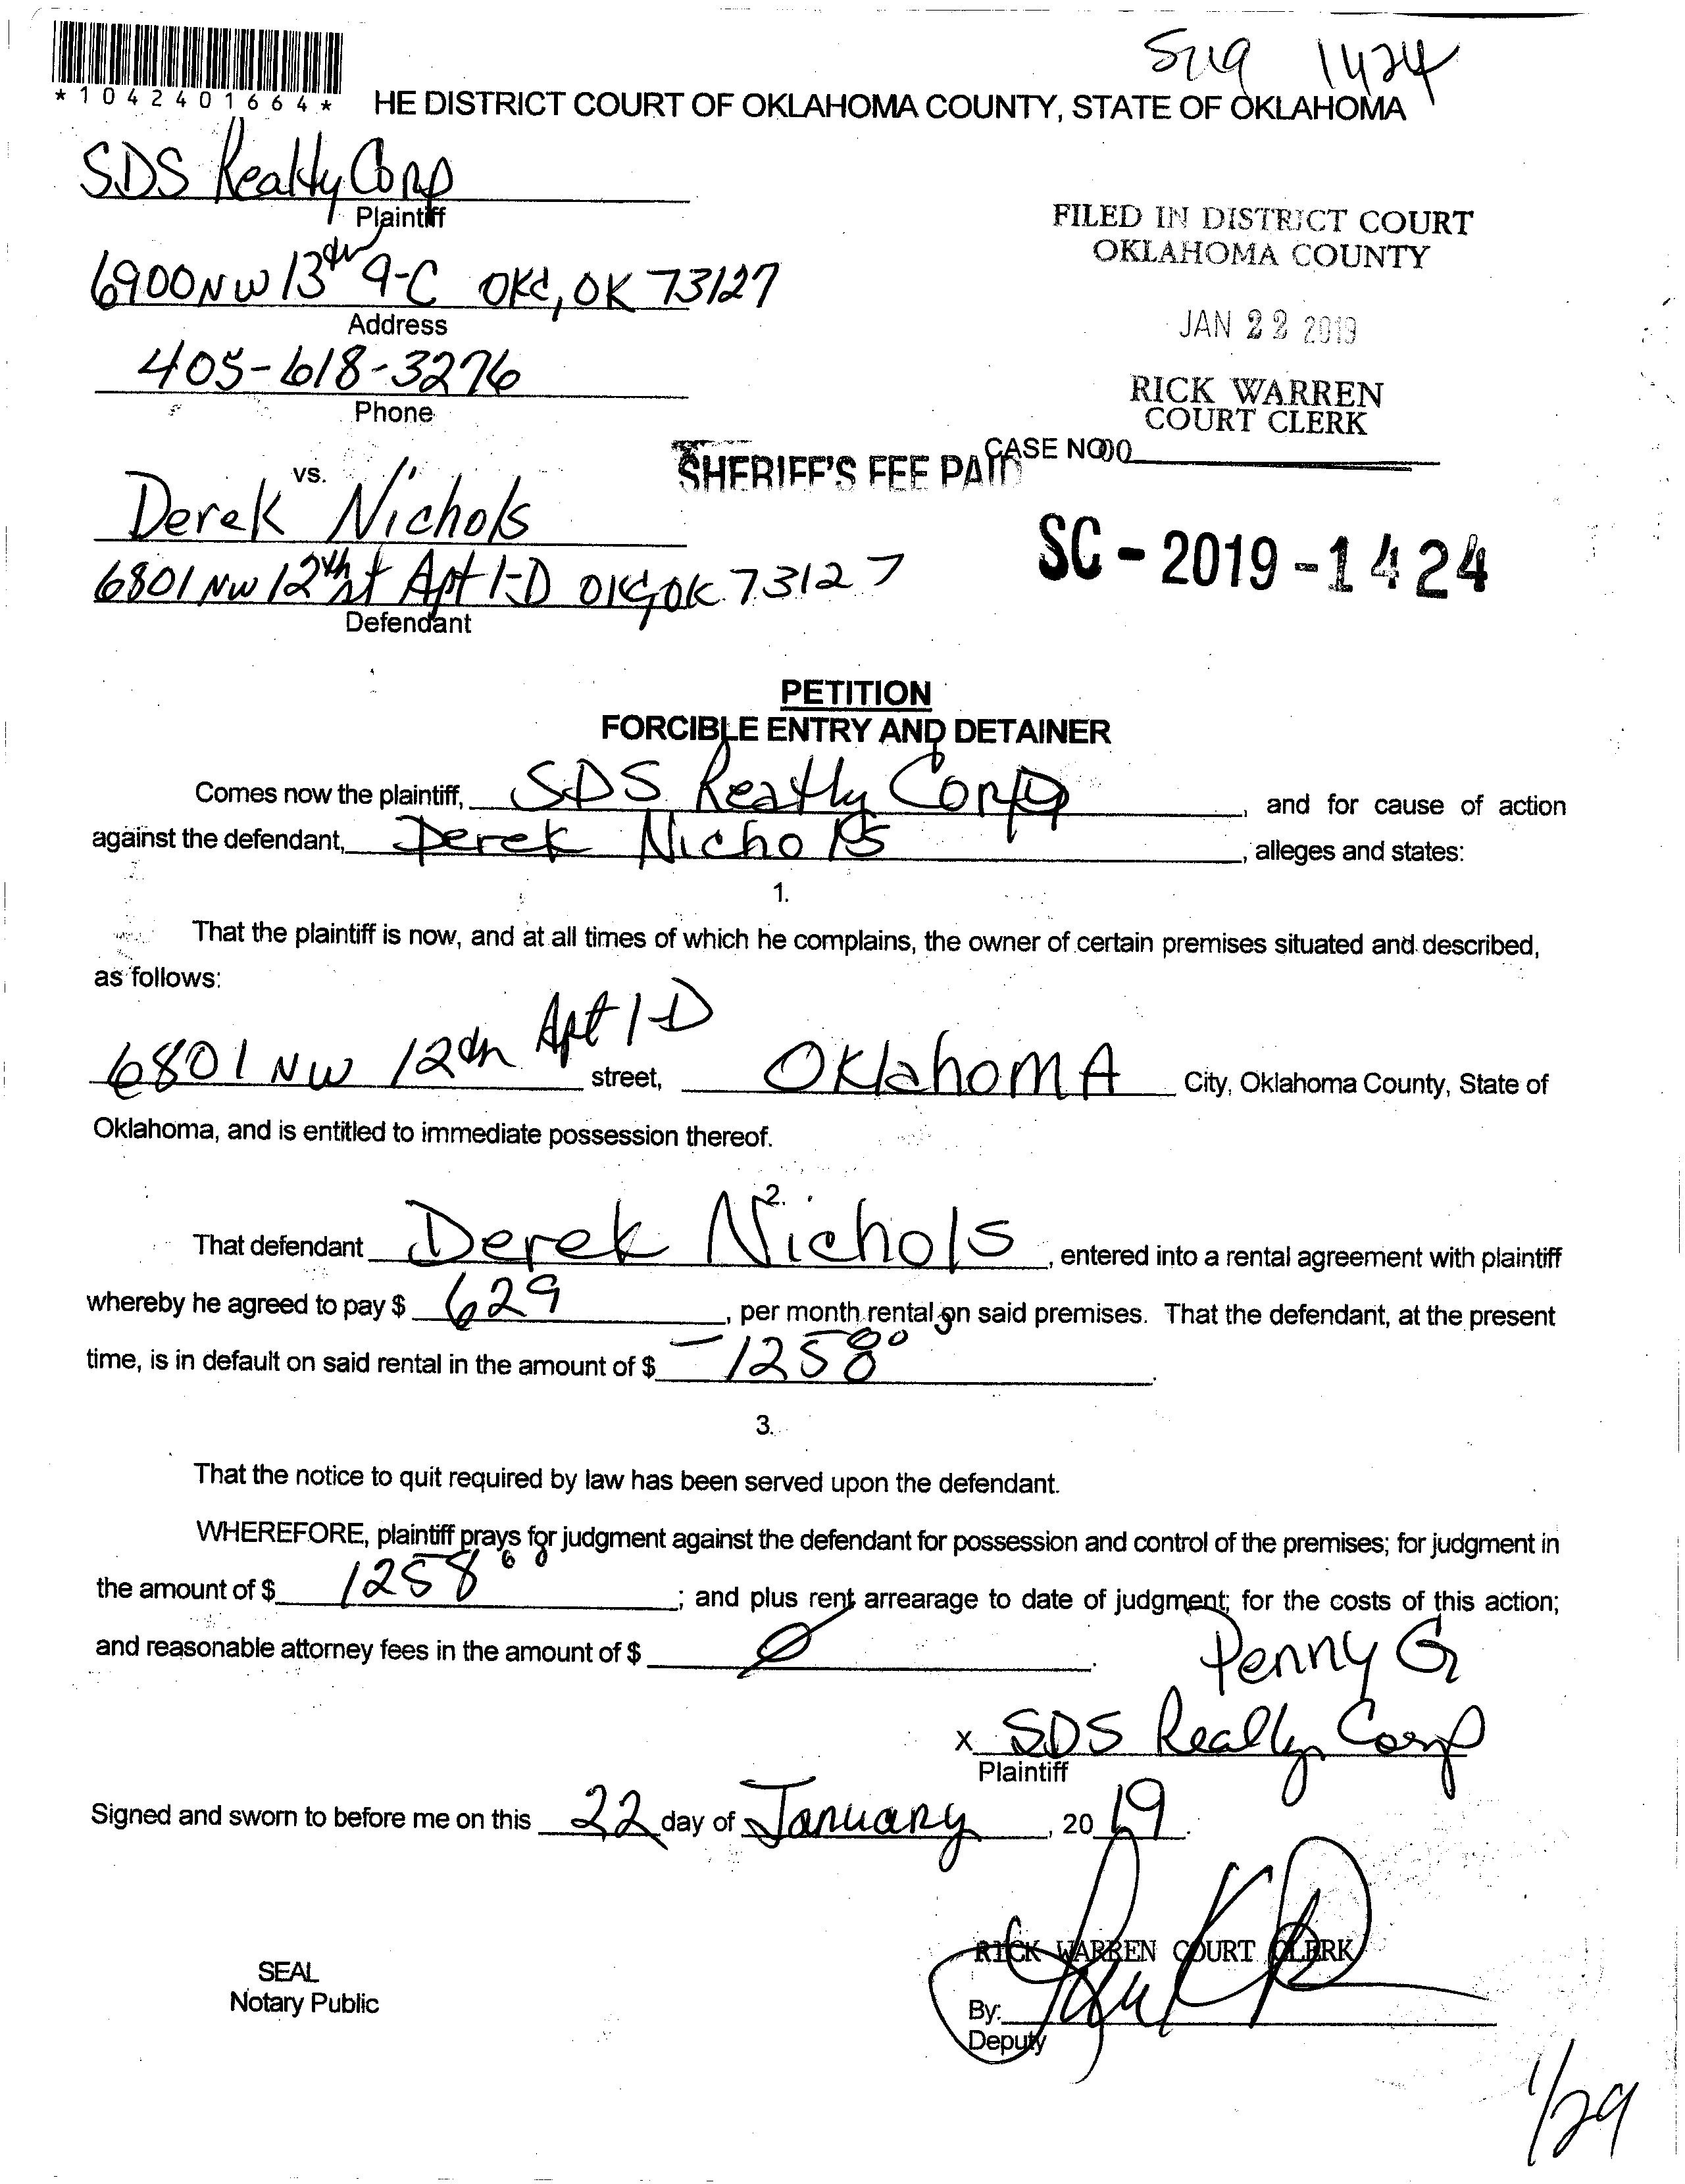 S19 1424
*1042401664*
HE DISTRICT COURT OF OKLAHOMA COUNTY, STATE OF OKLAHOMA
SDS Realty Corp
Plaintiff
6900 NW 13th 9-C OKC, OK 73127
Address
405-618-3276
Phone
FILED IN DISTRICT COURT
OKLAHOMA COUNTY
JAN 22 2019
RICK WARREN
COURT CLERK
SHERIFF'S FEE PAID
CASE NO
SC-2019-1424
vs.
Derek Nichols
6801 NW 12th st Apt 1-D OKC, OK 73127
Defendant
PETITION
FORCIBLE ENTRY AND DETAINER
Comes now the plaintiff, SDS Realty Corp, and for cause of action
against the defendant, Derek Nichols, alleges and states:
1.
That the plaintiff is now, and at all times of which he complains, the owner of certain premises situated and described,
as follows:
6801 NW 12th Apt 1-D street, OklahomA City, Oklahoma County, State of
Oklahoma, and is entitled to immediate possession thereof.
2.
That defendant Derek Nichols, entered into a rental agreement with plaintiff
whereby he agreed to pay $ 629, per month rental on said premises. That the defendant, at the present
time, is in default on said rental in the amount of $ -1258 00.
3.
That the notice to quit required by law has been served upon the defendant.
WHEREFORE, plaintiff prays for judgment against the defendant for possession and control of the premises; for judgment in
the amount of $ 1258 00; and plus rent arrearage to date of judgment; for the costs of this action;
and reasonable attorney fees in the amount of $ Ø.
Penny G
x SDS Realty Corp
Plaintiff
Signed and sworn to before me on this 22 day of January, 2019.
RICK WARREN COURT CLERK
SEAL
Notary Public
By:
Deputy
1/29